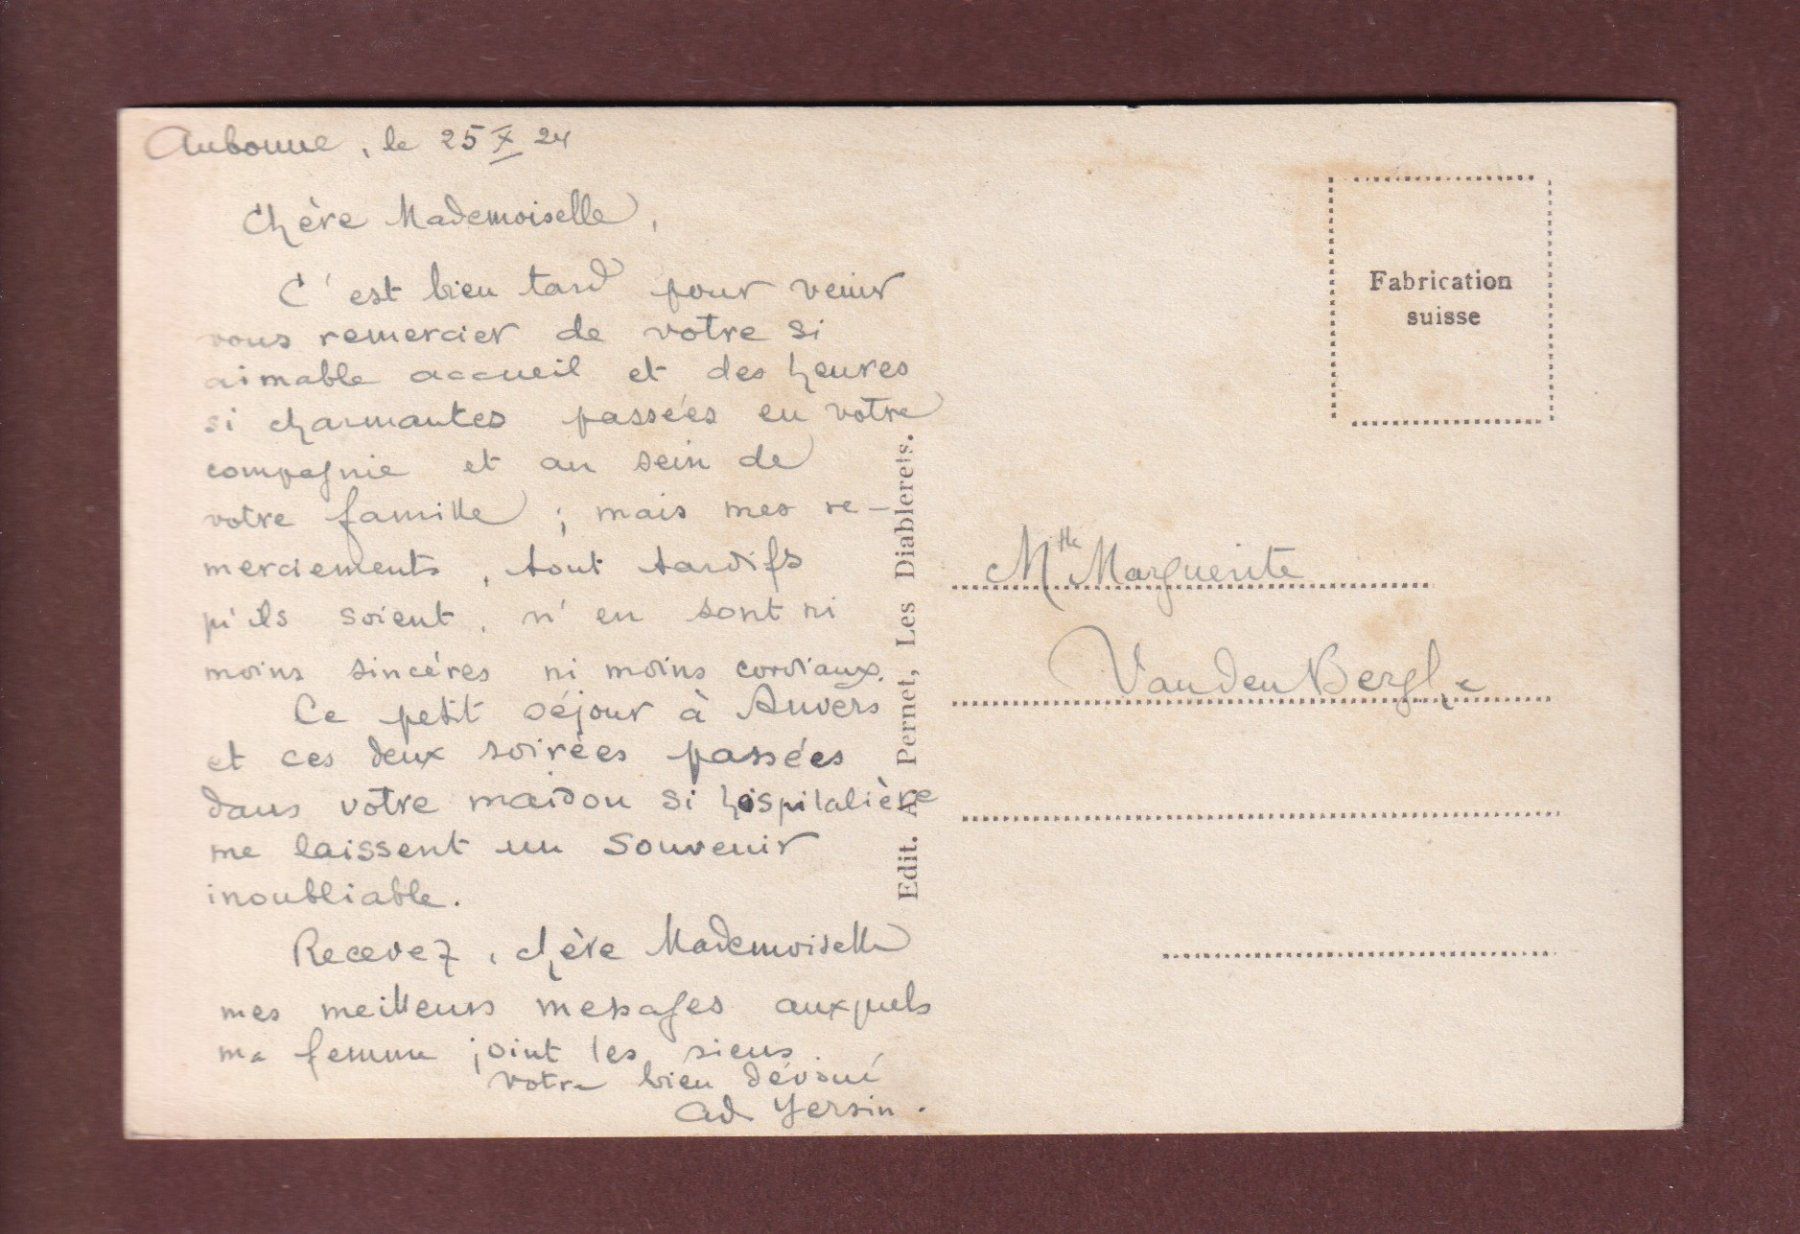 Aubonne, le 25 X 24
Chère Mademoiselle,
C'est bien tard pour venir
vous remercier de votre si
aimable accueil et des heures
si charmantes passées en votre
compagnie et au sein de
votre famille ; mais mes re-
merciements, tout tardifs
qu'ils soient, n'en sont ni
moins sincères ni moins cordiaux.
Ce petit séjour à Anvers
et ces deux soirées passées
dans votre maison si hospitalière
me laissent un souvenir
inoubliable.
Recevez, chère Mademoiselle
mes meilleurs messages auxquels
ma femme joint les siens.
votre bien dévoué
Ad Yersin.
Edit. A. Pernet, Les Diablerets.
Fabrication
suisse
Mlle Marguerite
Van den Bergh